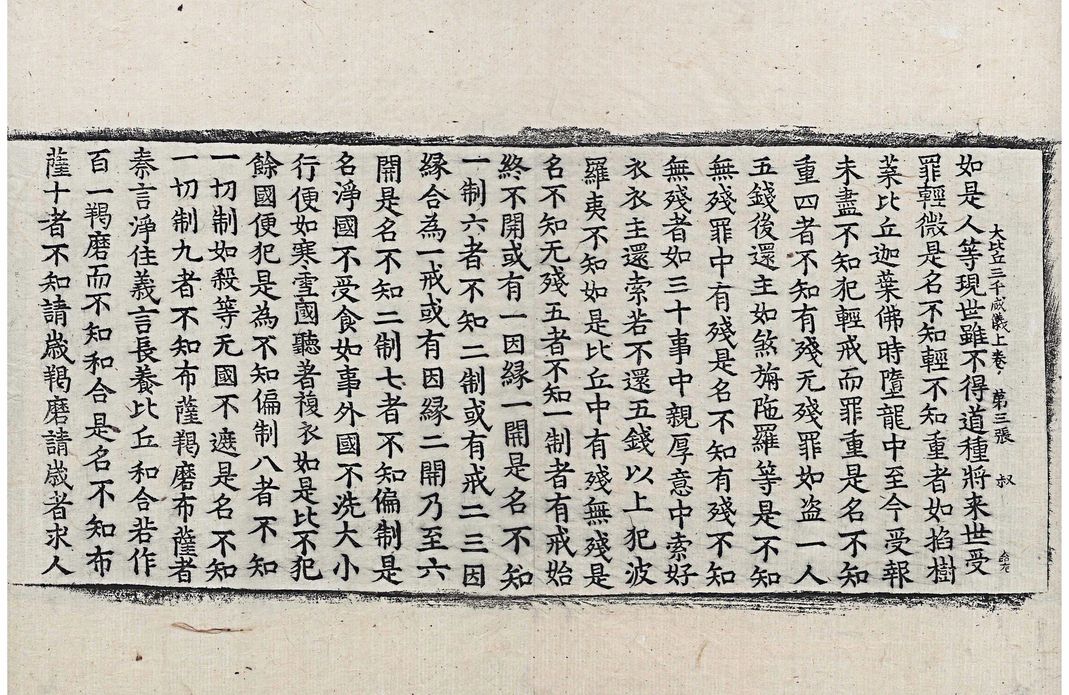 大比丘三千威儀上卷 第三張 叔
如是人等現世雖不得道種將来世受
罪輕微是名不知輕不知重者如掐樹
葉比丘迦葉佛時墮龍中至今受報
未盡不知犯輕戒而罪重是名不知
重四者不知有殘无殘罪如盗一人
五錢後還主如煞旃陁羅等是不知
無殘罪中有殘是名不知有殘不知
無殘者如三十事中親厚意中索好
衣衣主還索若不還五錢以上犯波
羅夷不知如是比丘中有殘無殘是
名不知无殘五者不知一制者有戒始
終不開或有一因緣一開是名不知
一制六者不知二制或有戒二三因
緣合為一戒或有因緣二開乃至六
開是名不知二制七者不知偏制是
名淨國不受食如事外國不洗大小
行便如寒雪國聽著複衣如是比不犯
餘國便犯是為不知偏制八者不知
一切制如殺等无國不遮是名不知
一切制九者不知布薩羯磨布薩者
秦言淨住義言長養比丘和合若作
百一羯磨而不知和合是名不知布
薩十者不知請歲羯磨請歲者求人